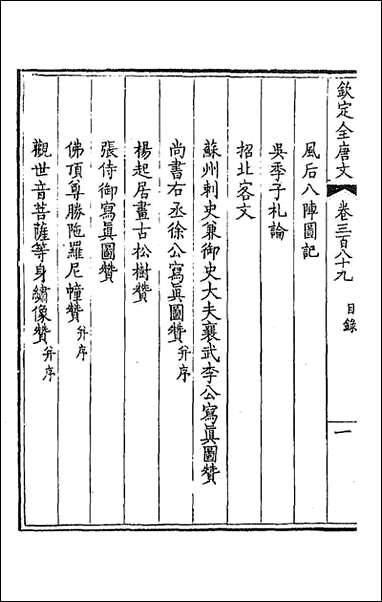 欽定全唐文 卷三百八十九 目錄 一
風后八陣圖記
吳季子札論
招北客文
蘇州刺史兼御史大夫襄武李公寫眞圖贊
尚書右丞徐公寫眞圖贊 并序
楊起居畫古松樹贊
張侍御寫眞圖贊
佛頂尊勝陁羅尼幢贊 并序
觀世音菩薩等身繡像贊 并序